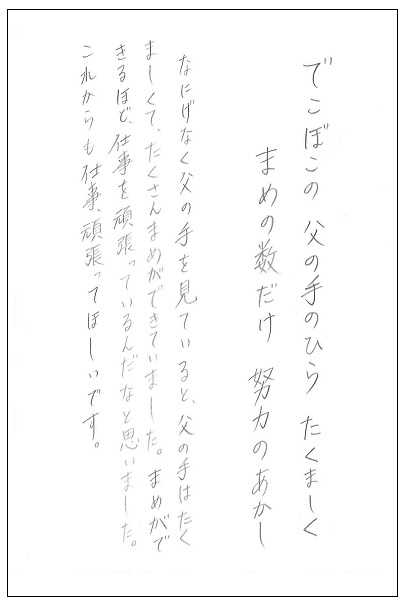 でこぼこの 父の手のひら たくましく
まめの数だけ 努力のあかし
なにげなく父の手を見ていると、父の手はたく
ましくて、たくさんまめができていました。まめがで
きるほど、仕事を頑張っているんだなと思いました。
これからも仕事、頑張ってほしいです。